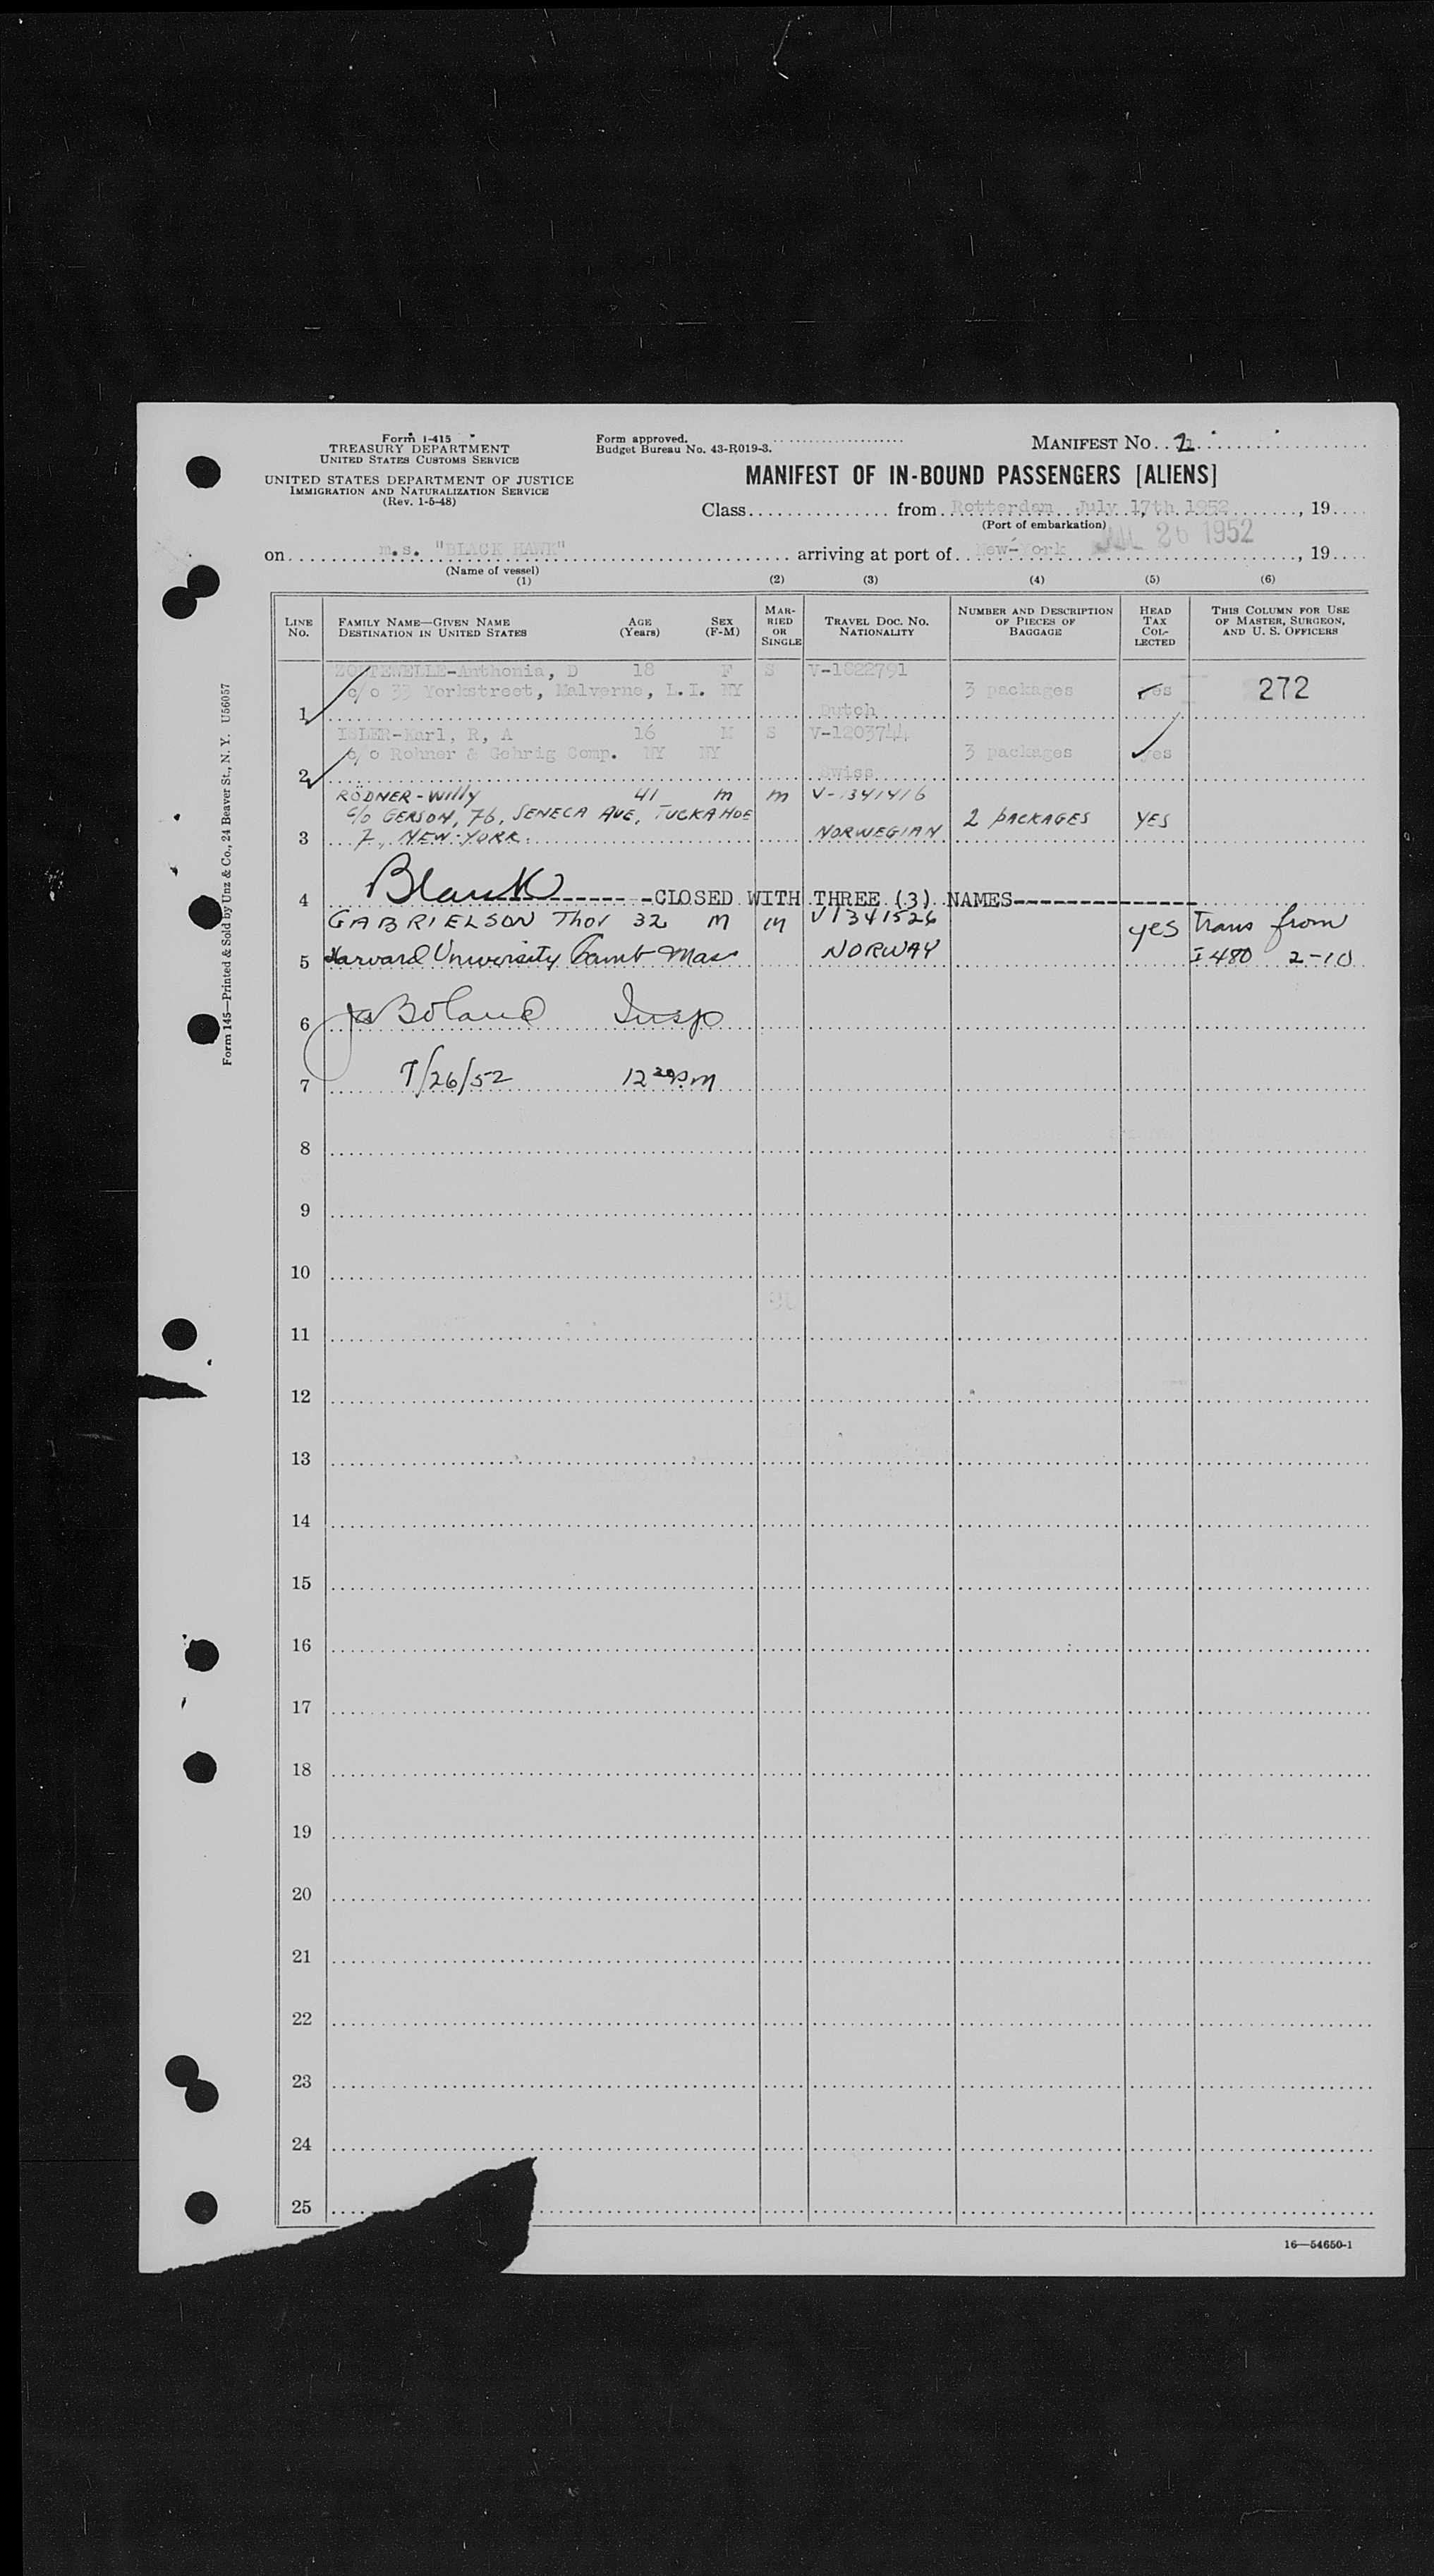 Form I-415
TREASURY DEPARTMENT
UNITED STATES CUSTOMS SERVICE
UNITED STATES DEPARTMENT OF JUSTICE
IMMIGRATION AND NATURALIZATION SERVICE
(Rev. 1-5-48)
Form approved.
Budget Bureau No. 43-R019-3.
MANIFEST NO.
MANIFEST OF IN-BOUND PASSENGERS [ALIENS]
Class from Rotterdam July 17th 1952, 19
(Port of embarkation)
JUL 26 1952
on m.s. "BLACK HAWK" arriving at port of New-York, 19
(Name of vessel)
(1) (2) (3) (4) (5) (6)
LINE NO. FAMILY NAME—GIVEN NAME DESTINATION IN UNITED STATES AGE (Years) SEX (F-M) MARRIED OR SINGLE TRAVEL DOC. NO. NATIONALITY NUMBER AND DESCRIPTION OF PIECES OF BAGGAGE HEAD TAX COLLECTED THIS COLUMN FOR USE OF MASTER, SURGEON, AND U. S. OFFICERS
Anthonia, D 18 F S V-1822791
c/o 33 Yorkstreet, Malverne, L.I. NY 3 packages yes 272
1 Dutch
ISLER-Karl, R, A 16 M S V-1203744
c/o Rohner & Gehrig Comp. NY NY 3 packages yes
2 Swiss
RÖDNER-Willy 41 M M V-1341416
c/o GERSON, 76, SENECA AVE, TUCKAHOE 2 PACKAGES YES
3 7, NEW-YORK. NORWEGIAN
4 Blank -CLOSED WITH THREE (3) NAMES-
GABRIELSON Thor 32 M M V1341526 yes Trans from
5 Harvard University Camb Mass NORWAY I 480 2-10
6 Boland Insp
7 7/26/52 12 30 PM
8
9
10
11
12
13
14
15
16
17
18
19
20
21
22
23
24
25
16—54650-1
Form 145—Printed & Sold by Unz & Co., 24 Beaver St., N. Y. U56057